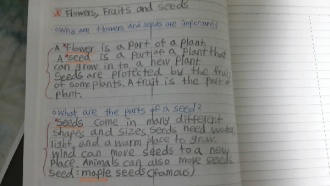 * Flowers, Fruits and Seeds
Why are flowers and seeds are important?
A "Flower" is a part of a plant
A "seed" is a part of a plant that
can grow in to a new plant
Seeds are protected by the fruit
of some plants. A fruit is the part of
plant.
What are the parts of a seed?
"Seeds come in many different
shapes and sizes. Seeds need water,
light, and a warm place to grow.
Wind can move seeds to a new
place. Animals can also move seeds
Seed: maple seeds (Famous)